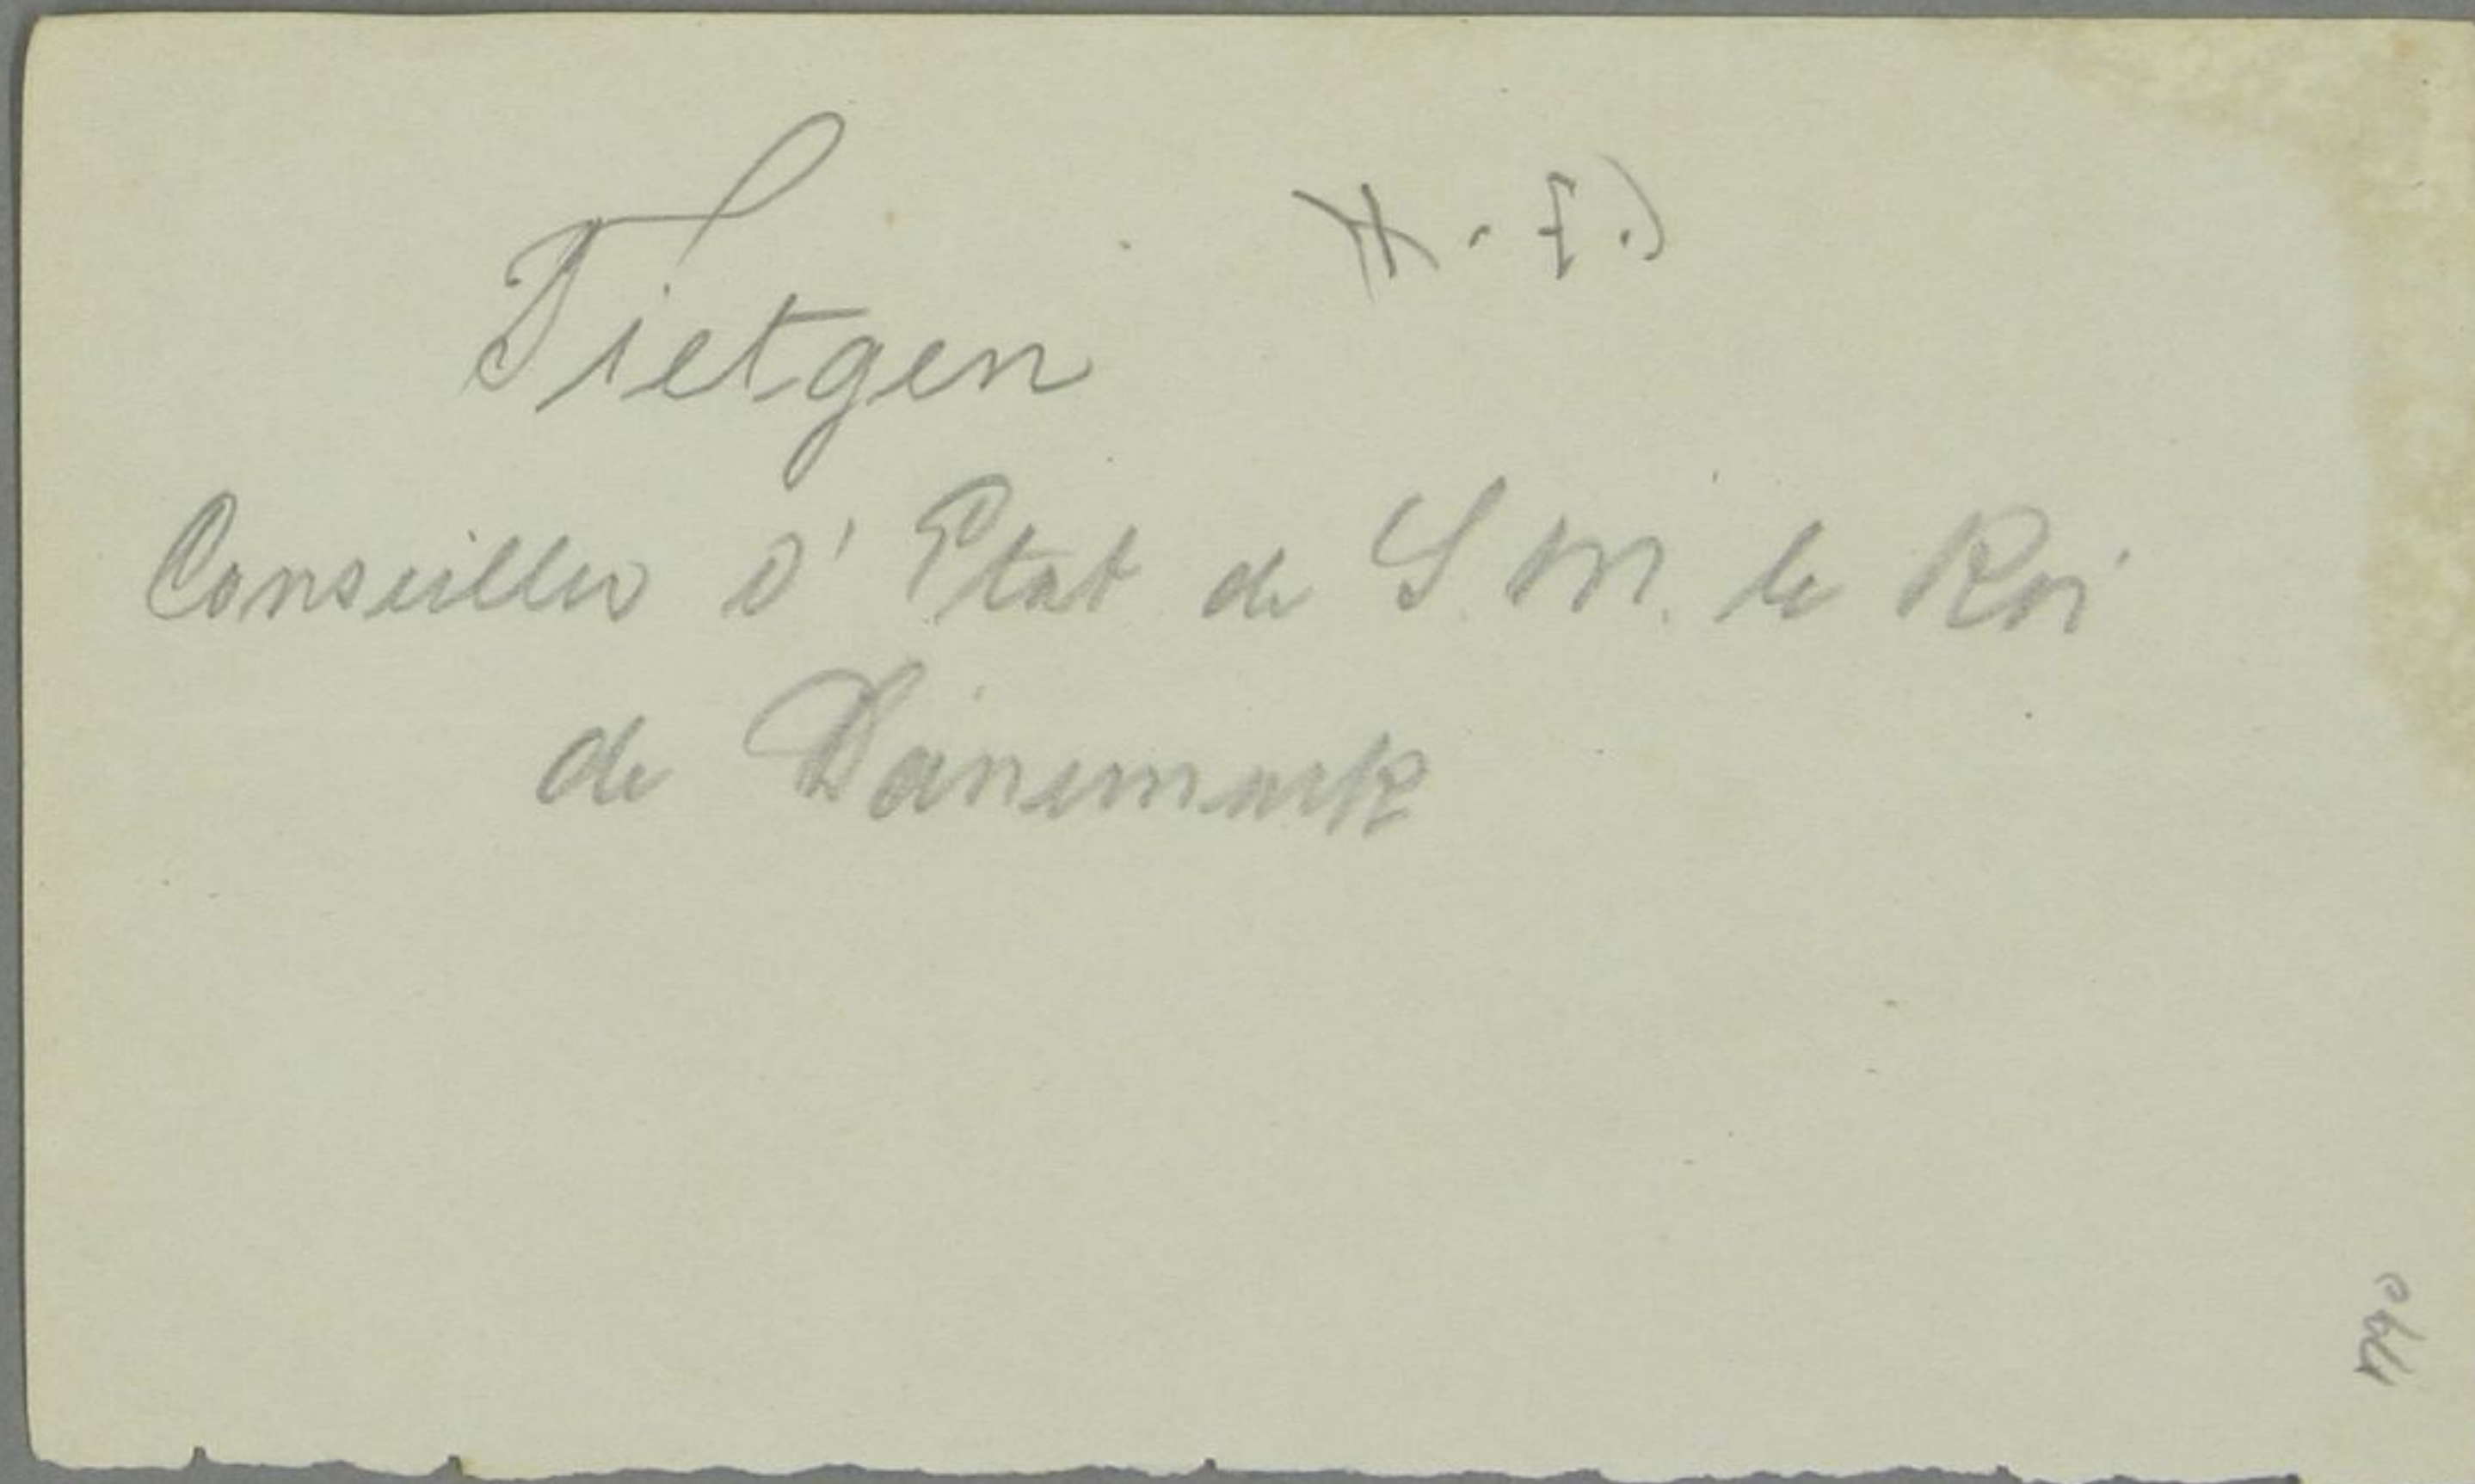 Tietgen
Conseiller d'Etat de S. M. le Roi
de Danemark